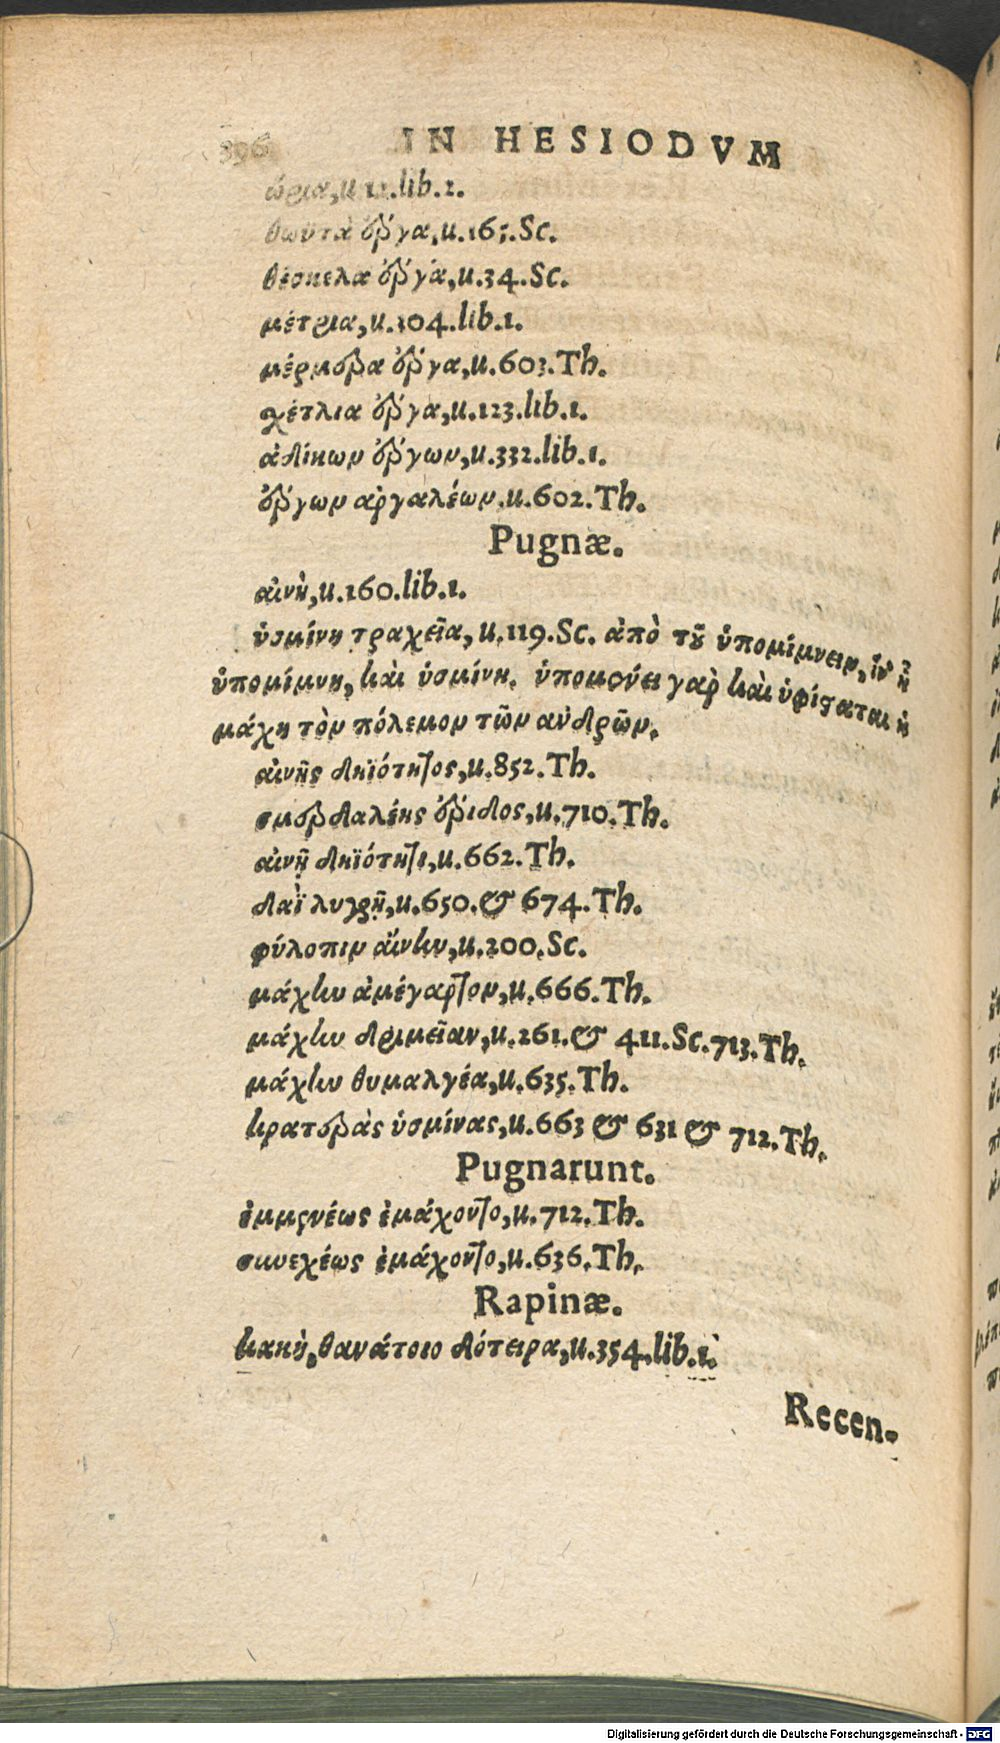 396 IN HESIODVM
ὥρια, u. 12. lib. 2.
θωϋτὰ ἔργα, u. 165. Sc.
θέσκελα ἔργα, u. 34. Sc.
μέτρια, u. 304. lib. 1.
μέρμερα ἔργα, u. 603. Th.
σχέτλια ἔργα, u. 123. lib. 1.
ἀδίκων ἔργων, u. 332. lib. 1.
ἔργων ἀργαλέων. u. 602. Th.
Pugnæ.
αἰνὴ, u. 160. lib. 1.
ὑσμίνη τραχεῖα, u. 119. Sc. ἀπὸ τοῦ ὑπομίμνειν, ἵν' ᾖ
ὑπομίμνη, καὶ ὑσμίνη. ὑπομένει γὰρ καὶ ὑφίσταται ἡ
μάχη τὸν πόλεμον τῶν ἀνδρῶν.
αἰνῆς δηϊότητος, u. 852. Th.
σμερδαλέης ἔριδος, u. 710. Th.
αἰνῇ δηϊότητι, u. 662. Th.
δαῒ λυγρῇ, u. 650. & 674. Th.
φύλοπιν αἴνην, u. 200. Sc.
μάχην ἀμέγαρτον, u. 666. Th.
μάχην δριμεῖαν, u. 261. & 411. Sc. 713. Th.
μάχην θυμαλγέα, u. 635. Th.
κρατερὰς ὑσμίνας, u. 663 & 631 & 712. Th.
Pugnarunt.
ἐμμενέως ἐμάχοντο, u. 712. Th.
συνεχέως ἐμάχοντο, u. 636. Th.
Rapinæ.
κακὴ, θανάτοιο δότειρα, u. 354. lib. 1.
Recen-
Digitalisierung gefördert durch die Deutsche Forschungsgemeinschaft - DFG